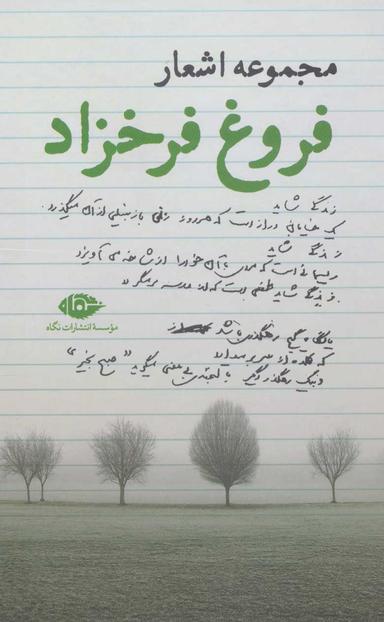 مجموعه اشعار
فروغ فرخزاد
زندگی شاید
یک خیابان دراز است که هر روز زنی با زنبیلی از آن میگذرد.
زندگی شاید
ریسمانی است که مردی با آن خود را از شاخه می آویزد
زندگی شاید طفلی است که از مدرسه برمیگردد
مؤسسهٔ انتشارات نگاه
یا گیج رهگذری باشد
که کلاه از سر بر میدارد
و بیک رهگذر دیگر با لبخندی بی معنی میگوید "صبح بخیر"